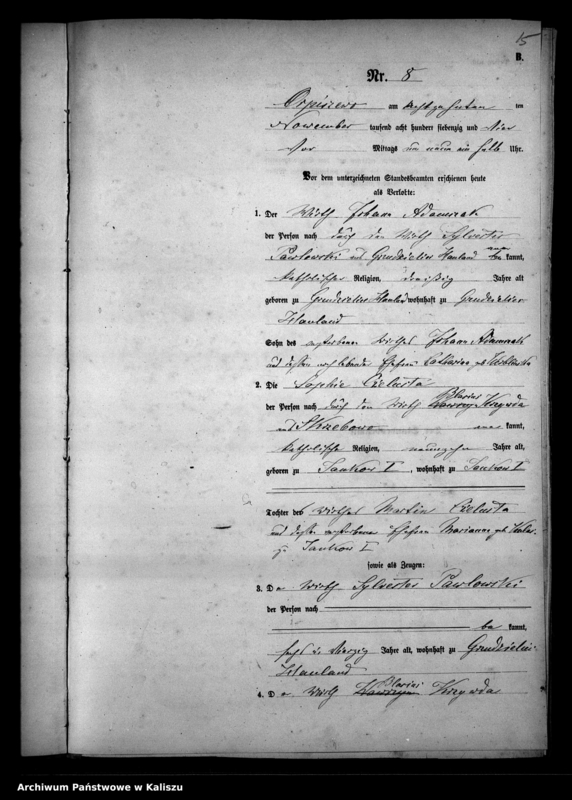 15
B.
Nr. 8
Orpiszewo am achtzehnten ten
November tausend acht hundert siebenzig und vier
Vor Mittags um neun ein halb Uhr.
Vor dem unterzeichneten Standesbeamten erschienen heute
als Verlobte:
1. Der Wirth Johann Adamczak
der Person nach durch den Wirth Sylvester
Pawlowski aus Grudzielec Hauland aner kannt,
katholischer Religion, dreißig Jahre alt
geboren zu Grudzielec Hauland wohnhaft zu Grudzielec
Hauland
Sohn des verstorbenen Wirthes Johann Adamczak
und dessen noch lebende Ehefrau Catharina geb
2. Die Sophie Czelusta
der Person nach durch den Wirth Hilarius Krzywda
aus Skrzebowo aner kannt,
katholische Religion, neunzehn Jahre alt,
geboren zu Jankow I, wohnhaft zu Jankow I
Tochter des Wirthes Martin Czelusta
und dessen verstorbenen Ehefrau Marianna geb
zu Jankow I
sowie als Zeugen:
3. Der Wirth Sylvester Pawlowski
der Person nach
be kannt,
sechs u. vierzig Jahre alt, wohnhaft zu Grudzielec-
Hauland
4. Der Wirth Hilarius Krzywda
Archiwum Państwowe w Kaliszu